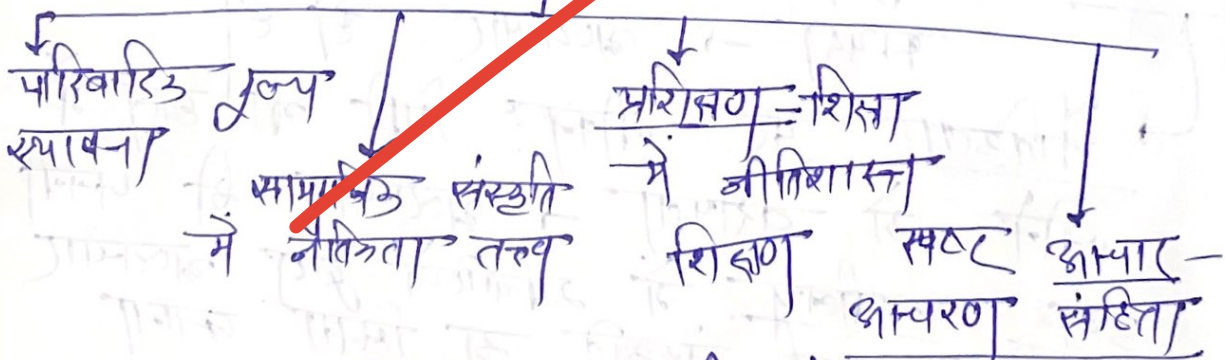 पारिवारिक मूल्य
स्थापना
सामाजिक संस्कृति
में नैतिकता तत्त्व
प्रशिक्षण - शिक्षा
में नीतिशास्त्र
शिक्षण
स्पष्ट आचार -
आचरण संहिता